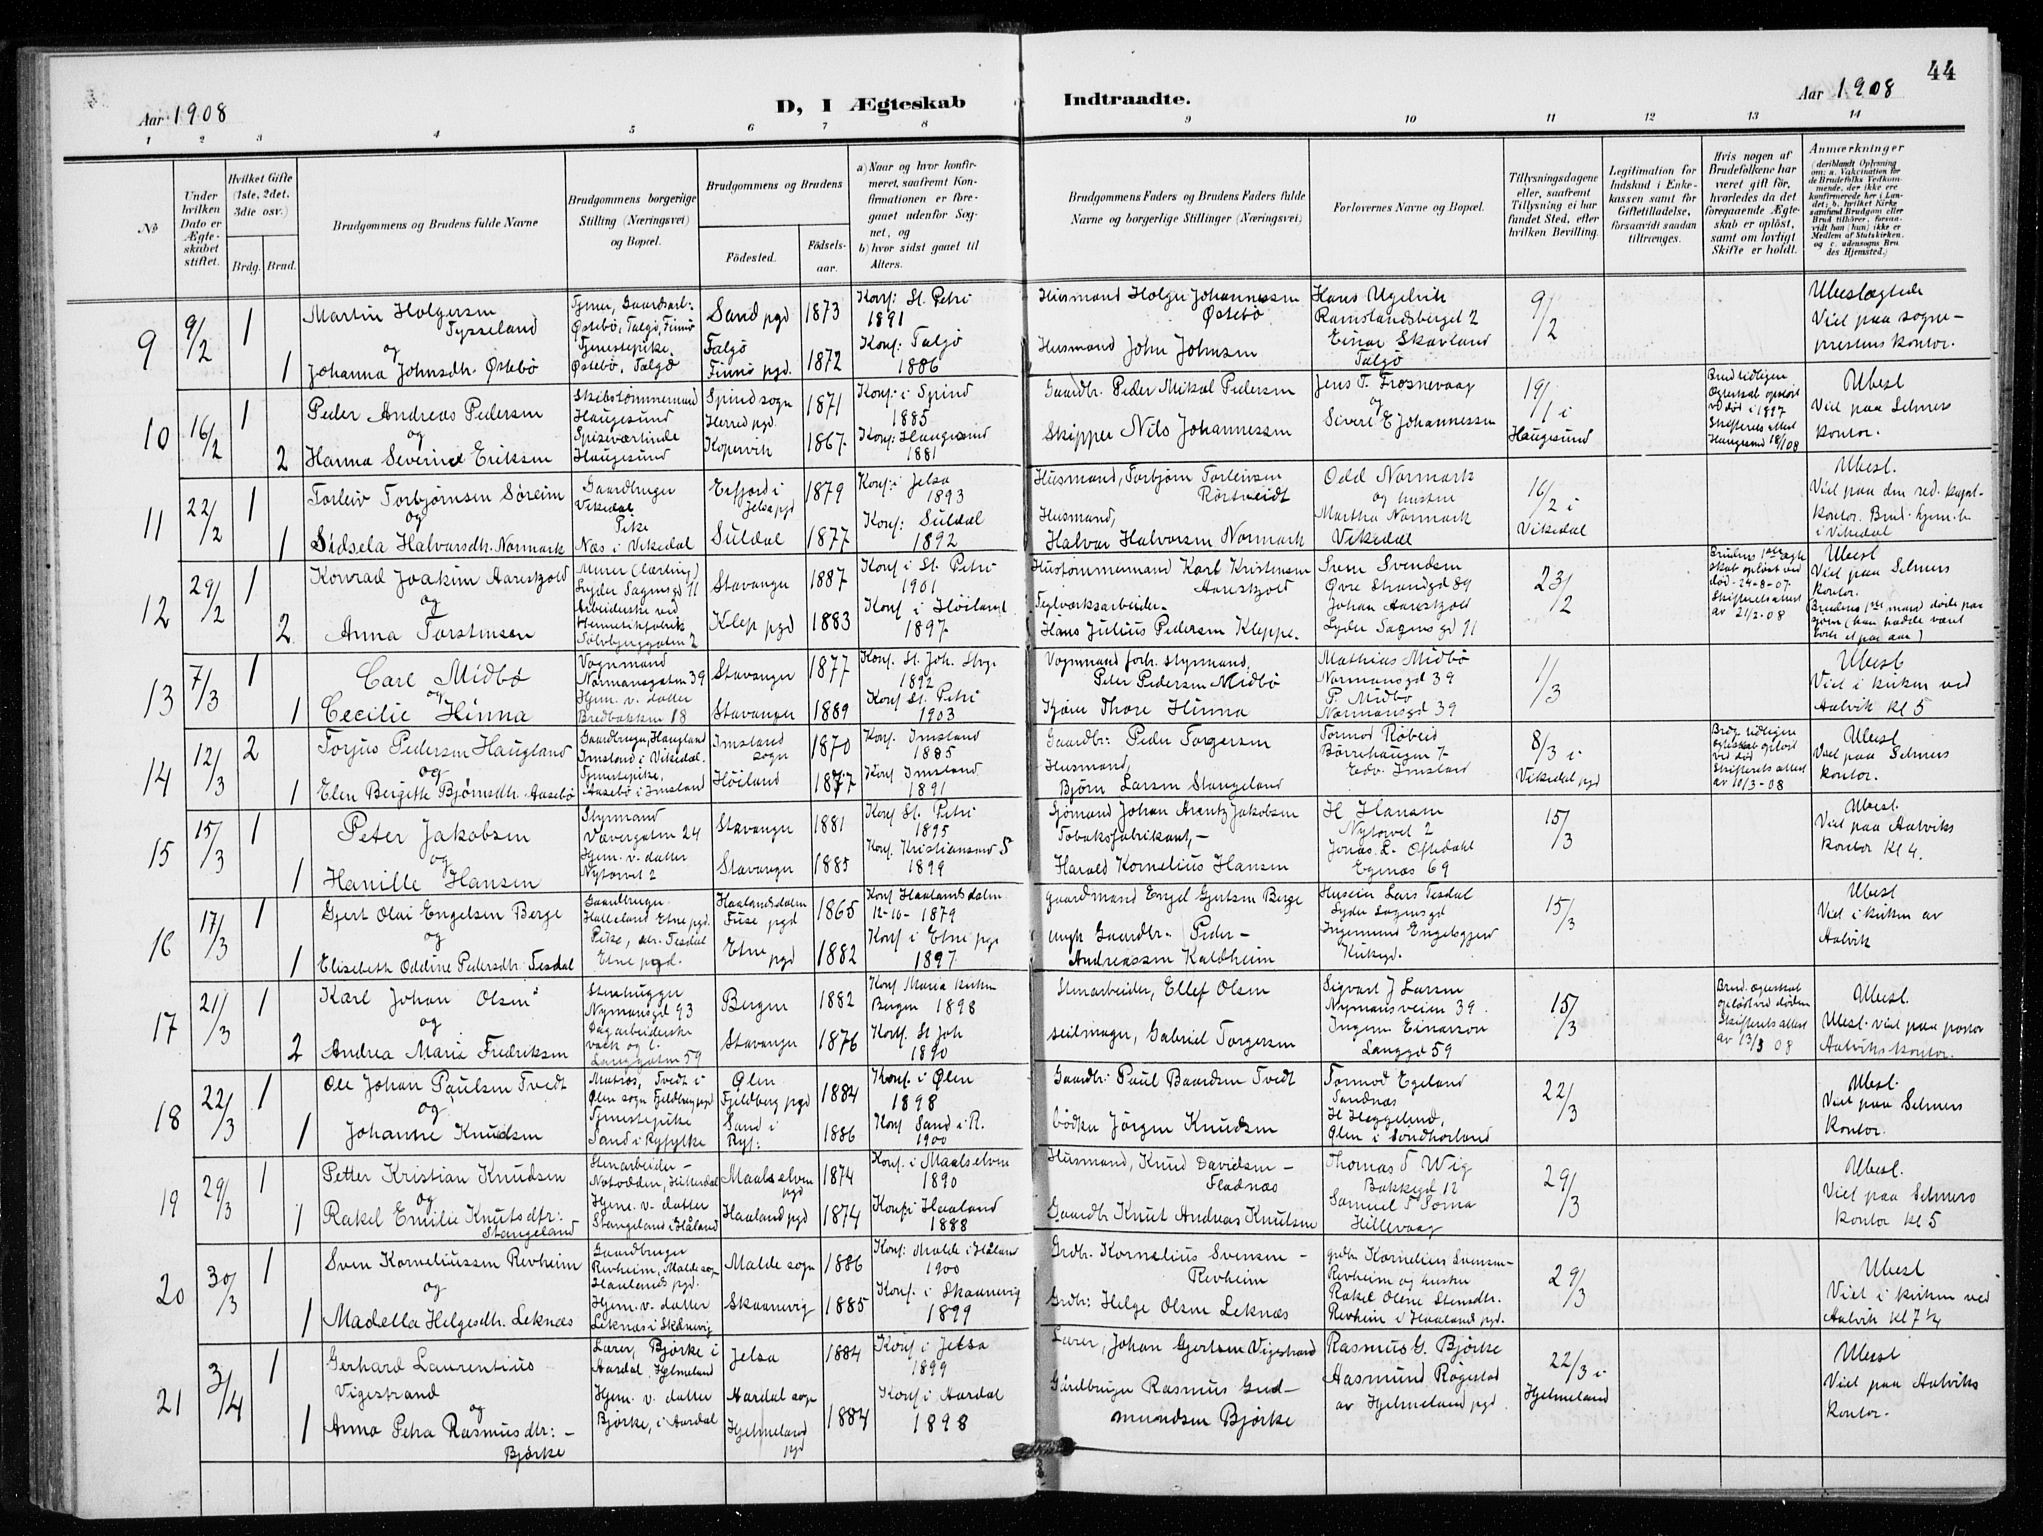 44
Aar 1908
D, I Ægteskab Indtraadte.
Aar 1908
1 2 3 4 5 6 7 8 9 10 11 12 13 14
No
Under hvilken Dato er Ægteskabet stiftet.
Hvilket Gifte (1ste, 2det, 3die osv.)
Brdg. Brud.
Brudgommens og Brudens fulde Navne
Brudgommens borgerlige Stilling (Næringsvei) og Bopæl.
Brudgommens og Brudens
Födested.
Födselsaar.
a) Naar og hvor konfirmeret, saafremt Konfirmationen er foregaaet udenfor Sognet, og
b) hvor sidst gaaet til Alters.
Brudgommens Faders og Brudens Faders fulde Navne og borgerlige Stillinger (Næringsvei)
Forlovernes Navne og Bopæl.
Tillysningsdagene eller, saafremt Tillysning ei har fundet Sted, efter hvilken Bevilling.
Legitimation for Indskud i Enkekassen samt for Giftetilladelse, forsaavidt saadan tiltrænges.
Hvis nogen af Brudefolkene har været gift för, hvorledes da det foregaaende Ægteskab er oplöst, samt om lovligt Skifte er holdt.
Anmærkninger
9
9/2
1
Martin Holgersen Tysseland
og
1
Johanna Johnsdtr. Østebø
Østebø, Talgø, Finnø
Tjenestepike
Østebø, Talgø
Sand pgd
Talgø Finnø pgd.
1873
1872
Konf: St. Petri 1891
Konf: Talgø 1886
Husmand Holger Johannessen Østebø
Husmand John Johnsen
Hans Ugelvik
Ramslandsberget 2
Einar Skavland
Talgø
9/2
Ubeslægtede
Viet paa sogneprestens kontor.
10
16/2
1
Peder Andreas Pedersen
og
2
Hanna Severine Eriksen
Skibstømmermand
Haugesund
Spiseværtinde
Haugesund
Spind sogn
Herred pgd.
Kopervik
1871
1867
Konf: i Spind 1885
Konf: Haugesund 1881
Gaardbr. Peder Mikal Pedersen
Skipper Nils Johannessen
Jens T. Frosnevaag
og
Sivert E Johannessen
19/1 i Haugesund
Brud tidligere ægteskab opløst ved død i 1897 Skifterets attest Haugesund 18/1 08
Ubesl
Viet paa Selmers kontor.
11
22/2
1
Torleiv Torbjørnsen Søreim
og
1
Sidsela Halvorsdtr. Normark
Gaardbruger
Vikedal
Pike
Næs i Vikedal
Erfjord i Jelsa pgd
Suldal
1879
1877
Konf: i Jelsa 1893
Konf: Suldal 1892
Husmand, Torbjørn Torleivsen Rørtveidt
Husmand,
Halvor Halvorsen Normark
Odd Normark
og hustru
Martha Normark
Vikedal
16/2 i Vikedal
Ubesl.
i Vikedal
12
29/2
1
Konrad Joakim Aareskjold
og
2
Anna Torstensen
Lyder Sagensgd 11
Arbeiderske ved
Hermetikfabrik
Sølvbjerggaten 2
Stavanger
Klep pgd
1887
1883
Konf i St. Petri 1901
Konf i Høiland 1897
Hustømmermand Karl Kristensen Aareskjold
Teglværksarbeider.
Hans Julius Pedersen Kleppe.
Sven Svendsen
Øvre Strandgd 89
Johan Aareskjold
Lyder Sagensgd 11
23/2
Brudens 1ste ægteskab opløst ved død 24-8-07. Skifteretsattest av 21/2-08
Ubesl
Viet paa Selmers kontor.
13
7/3
1
Carl Midbø
og
1
Cecilie Hinna
Vognmand
Normansgaten 39
Hjem. v. datter
Bredbakken 18
Stavanger
Stavanger
1877
1889
Konf. St. Joh. Stvgr 1892
Konf St. Petri 1903
Vognmand forh. styrmand,
Peter Pedersen Midbø
Kjøre Thore Hinna
Mathias Midbø
Normansgd 39
P. Midbø
Normansgd 39
1/3
Ubesl
Viet i kirken ved Aalvik kl 5
14
12/3
2
Torjus Pedersen Haugland
og
1
Elen Bergitte Bjørnsdtr. Aasebø
Gaardbruger, Haugland
Imsland i Vikedal.
Tjenestepike,
Aasebø i Imsland
Imsland sogn
Høiland
1870
1877
Konf. Imsland 1885
Konf Imsland 1891
Gaardbr: Peder Torgersen
Husmand,
Bjørn Larsen Stangeland
Tormod Røbeid
Børrehaugen 7
Edv. Imsland
8/3 i Vikedal pgd
Brdg. tidligere ægteskab opløst ved død Skifterets attest av 10/3-08
Ubesl
Viet paa Selmers kontor.
15
15/3
1
Peter Jakobsen
og
1
Hanille Hansen
Styrmand
Vævergaten 24
Hjem. v. datter
Nytorvet 2
Stavanger
Stavanger
1881
1885
Konf St. Petri 1895
Konf. Kristiansand S 1899
Sjømand Johan Arentz Jakobsen
Tobaksfabrikant,
Harald Kornelius Hansen
H Hansen
Nytorvet 2
Jonas L. Oftedahl
Egenæs 69
15/3
Ubesl.
Viet paa Aalviks kontor kl 4.
16
17/3
1
Gjert Olai Engelsen Berge
og
1
Elisabeth Oddine Pedersdtr. Tesdal
Gaardbruger
Halleland Etne pgd.
Pike, Tesdal
Etne pgd.
Haalandsdalen
Fuse pgd
Etne pgd
1865
1882
Konf Haalandsdalen 12-10-1879
Konf i Etne pgd 1897
Gaardmand Engel Gjertsen Berge
Gaardbr. Peder Andreassen Kaldheim
Lars Tesdal
Lyder Sagensgd
Ingemund Engelsgjerd
Kirkegd.
15/3
Ubesl
Viet i kirken av Aalvik
17
21/3
1
Karl Johan Olsen
og
2
Andrea Marie Fredriksen
Stenhugger
Nymansgd 93
Dagarbeiderske
Langgaten 59
Bergen
Stavanger
1882
1876
Konf Maria kirken Bergen 1898
Konf. St Joh 1890
Stenarbeider, Ellef Olsen
seilmager, Gabriel Torgersen
Sigvart J Larsen
Nymansveien 39.
Ingem Einarson
Langgd 59
15/3
Brud. ægteskab opløst ved døden Skifterets attest av 13/3 08
Ubesl.
Ubesl. viet paa pastor Aalviks kontor.
18
22/3
1
Ole Johan Paulsen Tvedt
og
1
Johanne Knudsen
Matros, Tvedt i
Ølen sogn Fjeldberg pgd
Tjenestepike
Sand i Ryfylke
Ølen
Fjeldberg pgd
Sand i Ryf:
1884
1886
Konf. i Ølen 1898
Konf Sand i R. 1900
Gaardbr: Paul Baardsen Tvedt
bødker Jørgen Knudsen
Tormod Egeland
Sandnæs
H Heggelund,
Ølen i Søndhorland
22/3
Ubesl.
Viet paa Selmers kontor.
19
29/3
1
Petter Kristian Knudsen
og
1
Rakel Emilie Knutsdtr: Stangeland
Stenarbeider
Notodden, Hitterdal
Hjem. v. datter
Stangeland i Håland
Maalselven pgd
Haaland pgd
1874
1874
Konf. i Maalselven 1890
Konf: i Haaland 1888
Husmand, Knud Davidsen Fladnæs
Gaardbr Knut Andreas Knutsen
Thomas T Wig
Bakkegd 12
Samuel T Soma
Hillevaag
29/3
Ubesl.
Viet paa Selmers kontor kl 5
20
30/3
1
Sven Korneliussen Revheim
og
1
Madella Helgesdtr. Leknæs
Gaardbruger
Revheim, Malde sogn
Haalands pgd.
Hjem. v. datter
Leknæs i Skånevig
Malde sogn
Skaanevig
1886
1885
Konf: Malde i Håland 1900
Konf. i Skaanevig 1899
Grdbr. Kornelius Svensen Revheim
Grdbr: Helge Olsen Leknæs
grdbr Kornelius Svensen
Revheim og hustru
Rakel Oline Stensdtr.
Revheim i Haaland pgd.
29/3
Ubesl
Viet i kirken ved Aalvik kl 7 1/4
21
3/4
1
Gerhard Laurentius Vigestrand
og
1
Anna Petra Rasmusdtr: Bjørke
Lærer, Bjørke i
Aardal Hjelmeland
Hjem. v. datter
Bjørke, i Aardal
Jelsa
Aardal sogn
Hjelmeland pgd
1884
1884
Konf i Jelsa 1899
Konf i Aardal 1898
Lærer, Johan Gjertsen Vigestrand
Gårdbruger Rasmus Gudmundsen Bjørke
Rasmus G. Bjørke
Aasmund Røgelstad
av Hjelmeland pgd.
22/3 i Hjelmeland
Ubesl
Viet paa Aalviks kontor.